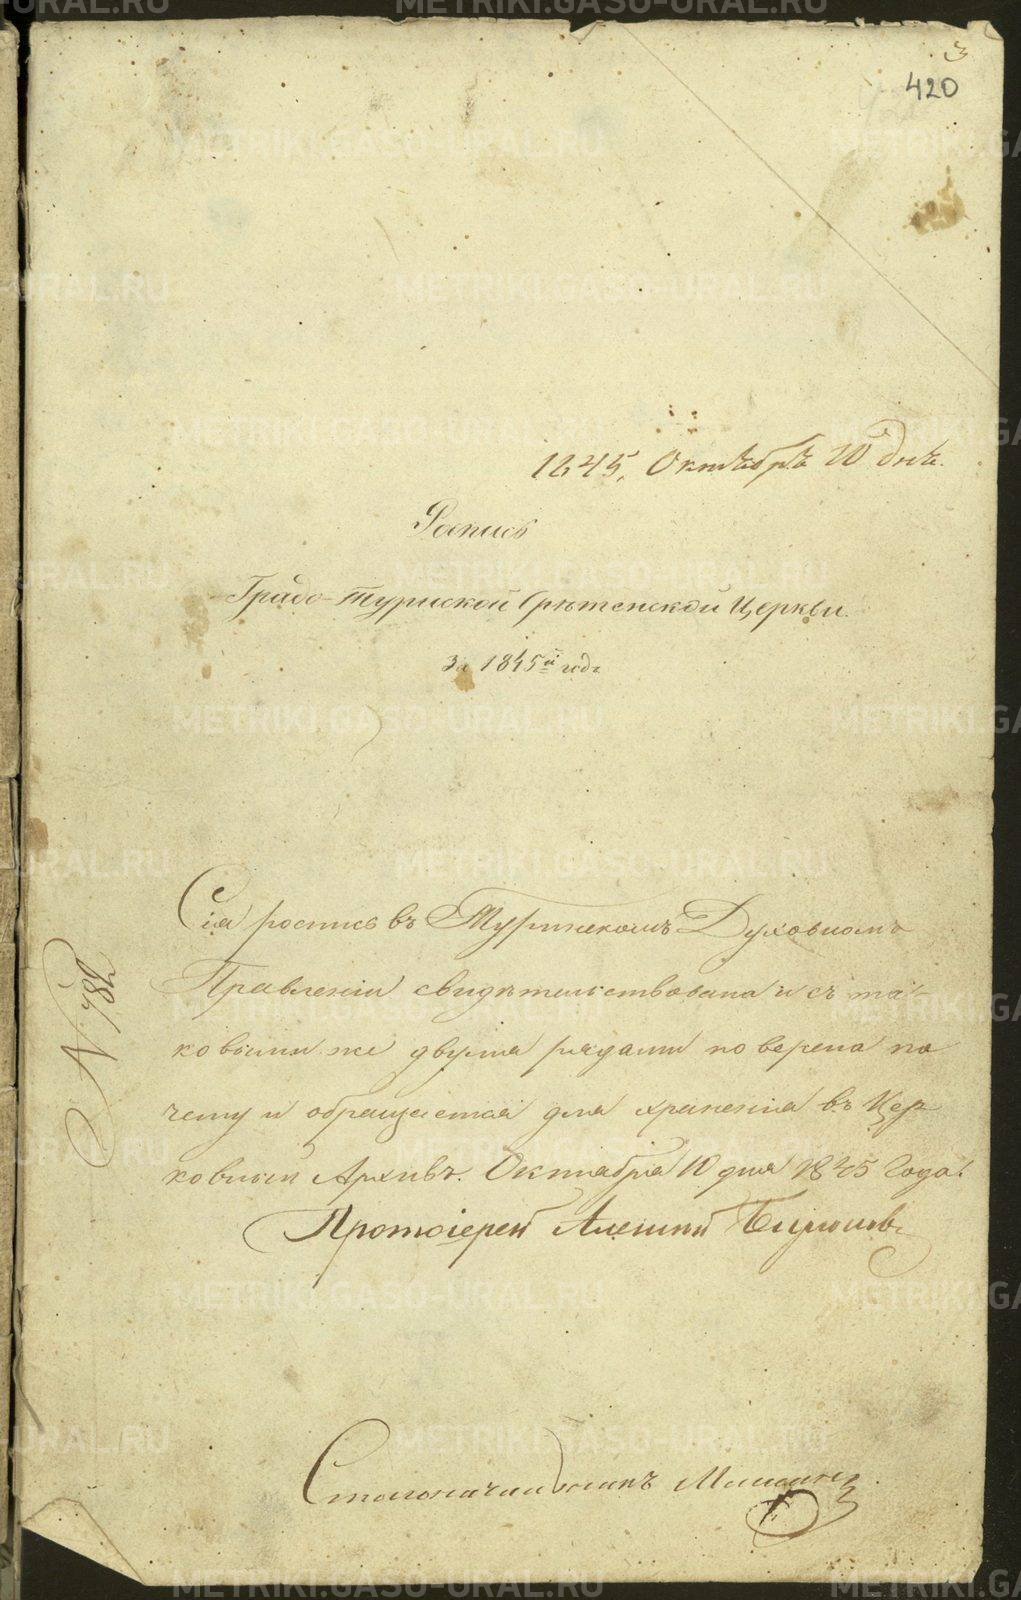 3
420
1845, Октября 10 дня.
Роспись
Градо-Туринской Срѣтенской Церкви.
За 1845й годъ
Сія роспись въ Туринскомъ Духовномъ
Правленіи свидѣтельствована и съ та-
ковыми же двумя рядами поверена по
чему и обращается для храненія въ Цер
ковный Архивъ. Октября 10 дня 1845 Года.
Протоіерей Алексий
Столоначальникъ
N 782
METRIKI.GASO-URAL.RU